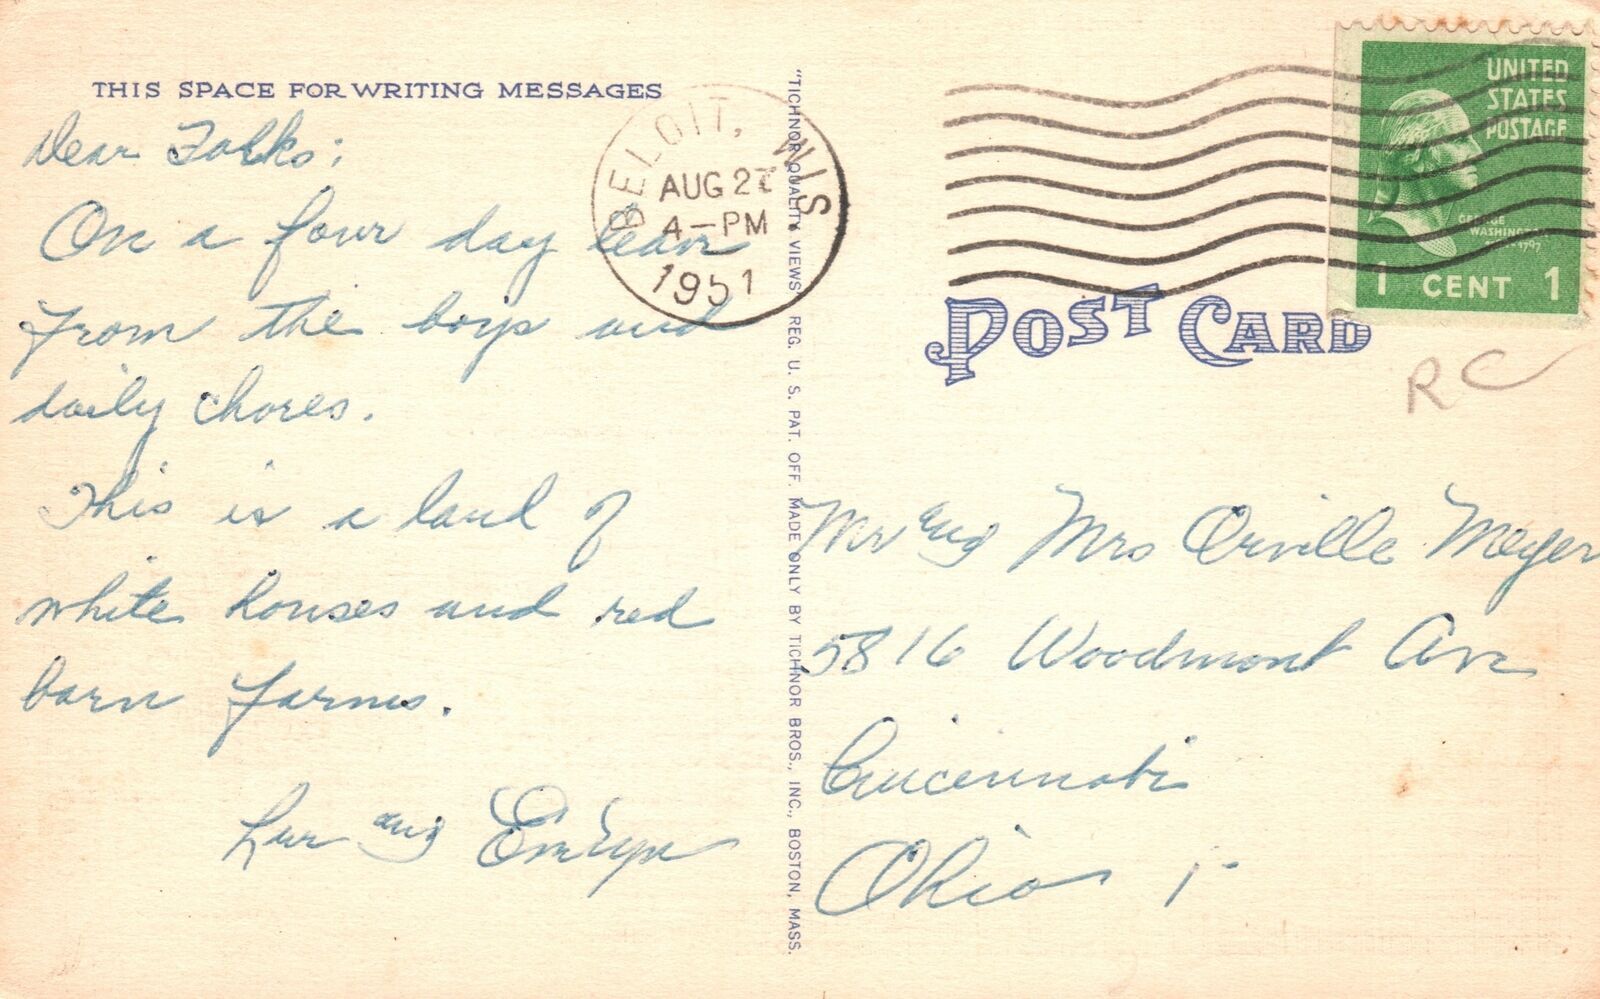 THIS SPACE FOR WRITING MESSAGES
Dear Folks:
On a four day leave
from the boys and
daily chores.
This is a land of
white houses and red
barn farms.
and
BELOIT, WIS
AUG 27
4-PM
1951
"TICHNOR QUALITY VIEWS" REG. U. S. PAT. OFF. MADE ONLY BY TICHNOR BROS., INC., BOSTON, MASS.
UNITED
STATES
POSTAGE
GEORGE
WASHINGTON
1 CENT 1
POST CARD
RC
Mr and Mrs Orville Meyer
5816 Woodmont Ave
Cincinnati
Ohio